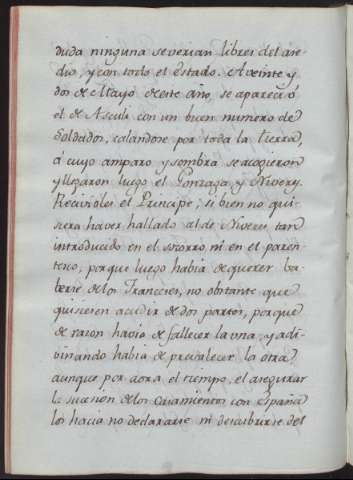 duda ninguna se verian libres del ase-
dio, y con todo el estado. A veinte y
dos de Mayo de este año, se apareció
el de Asculi con un buen numero de
Soldados, calandose por toda la tierra,
á cuyo amparo y sombra se acogieron
y llegaron luego el Gonzaga y Nivers.
Recivioles el Principe, si bien no qui-
siera haver hallado al de Nivers tan
introducido en el socorro ni en el paren-
tesco, porque luego habia de querer ba-
lerse de los Franceses, no obstante que
quisiesen acudir de dos partes, porque
de razon havia de fallecer la una, y adi-
vinando habia de prevalecer la otra
aunque por aora el tiempo, el asegurar
la sucesion de los Casamientos con España
los hacia no declararse ni descubrirse del